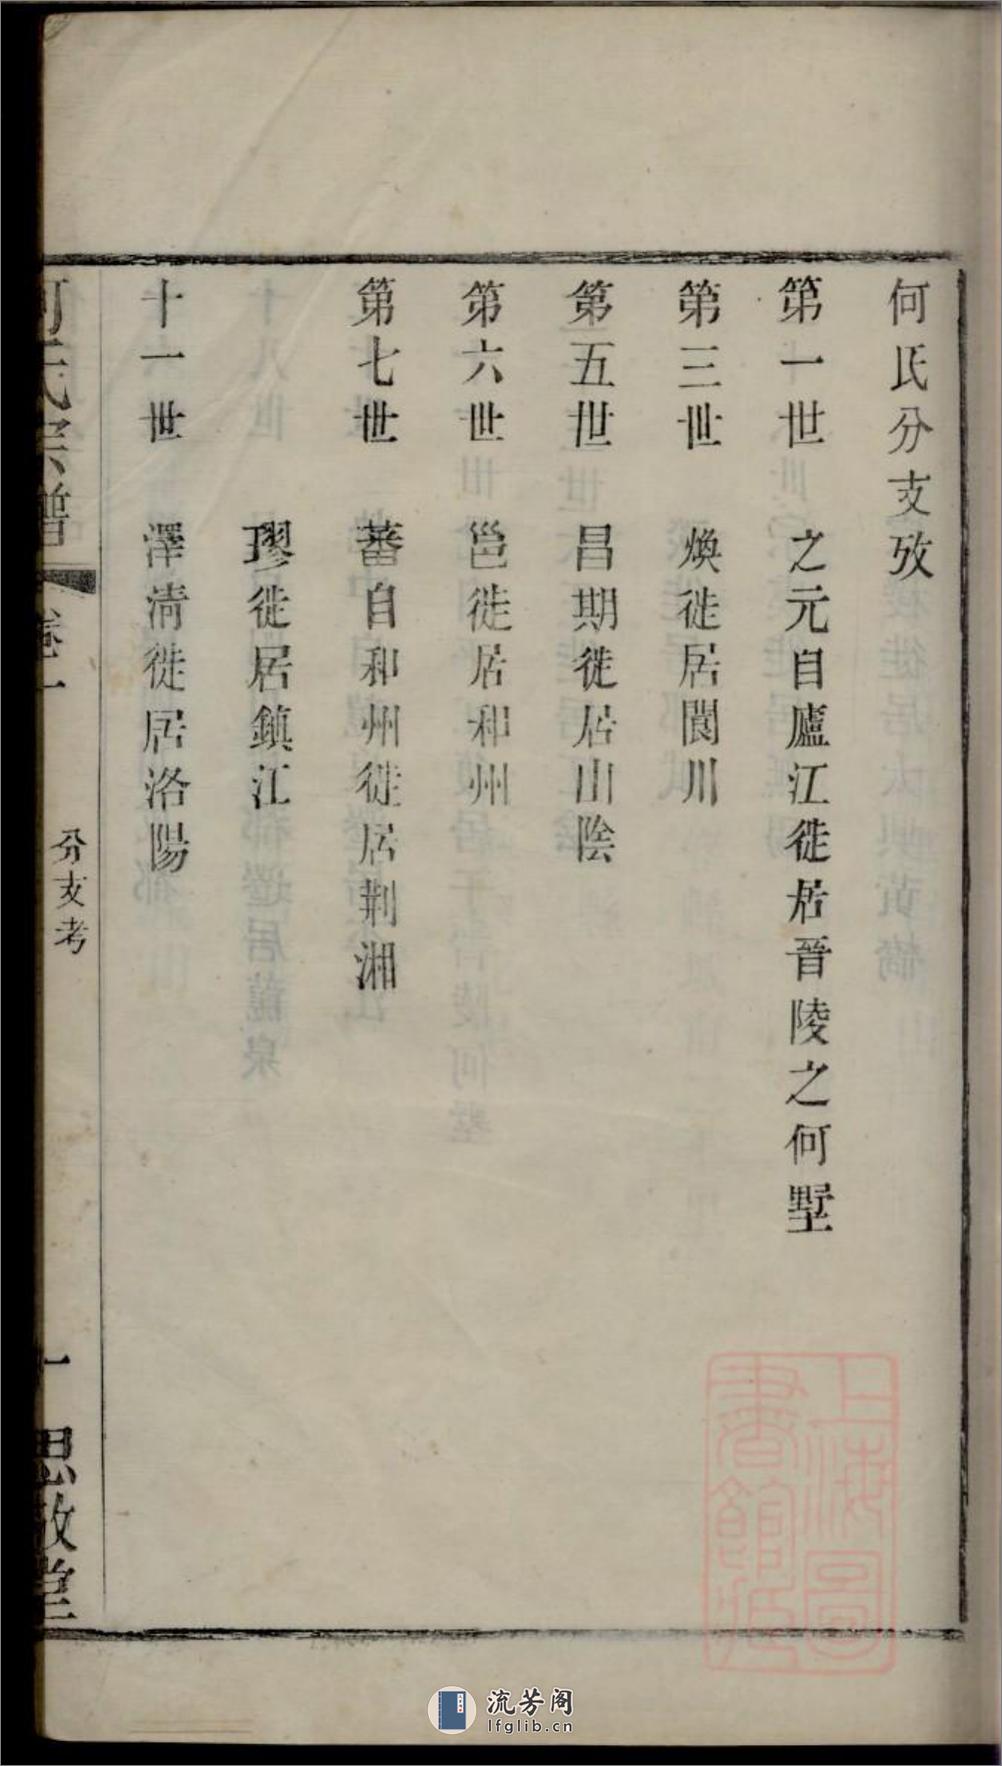 何氏分支攷
第一世 之元自廬江徙居晉陵之何墅
第三世 煥徙居閬川
第五世 昌期徙居山陰
第六世 邕徙居和州
第七世 蕃自和州徙居荆湘
璆徙居鎮江
十一世 澤清徙居洛陽
何氏宗譜 卷一 分支考 一 思敬堂
上海圖書館藏
流芳阁
lfglib.cn